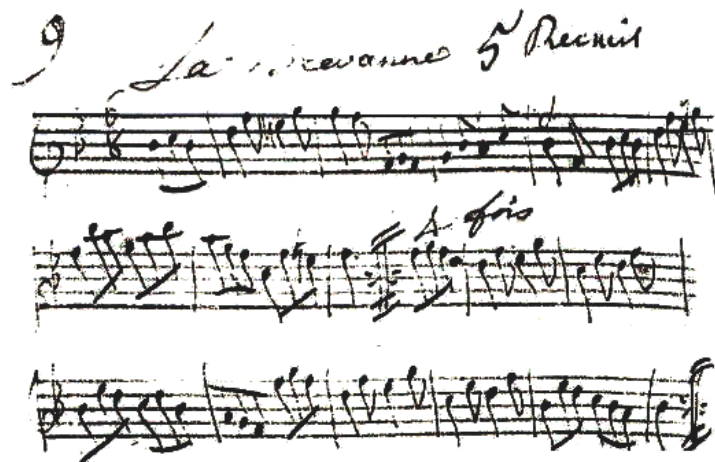 9 La 5 Recueil
6 8
4 fois